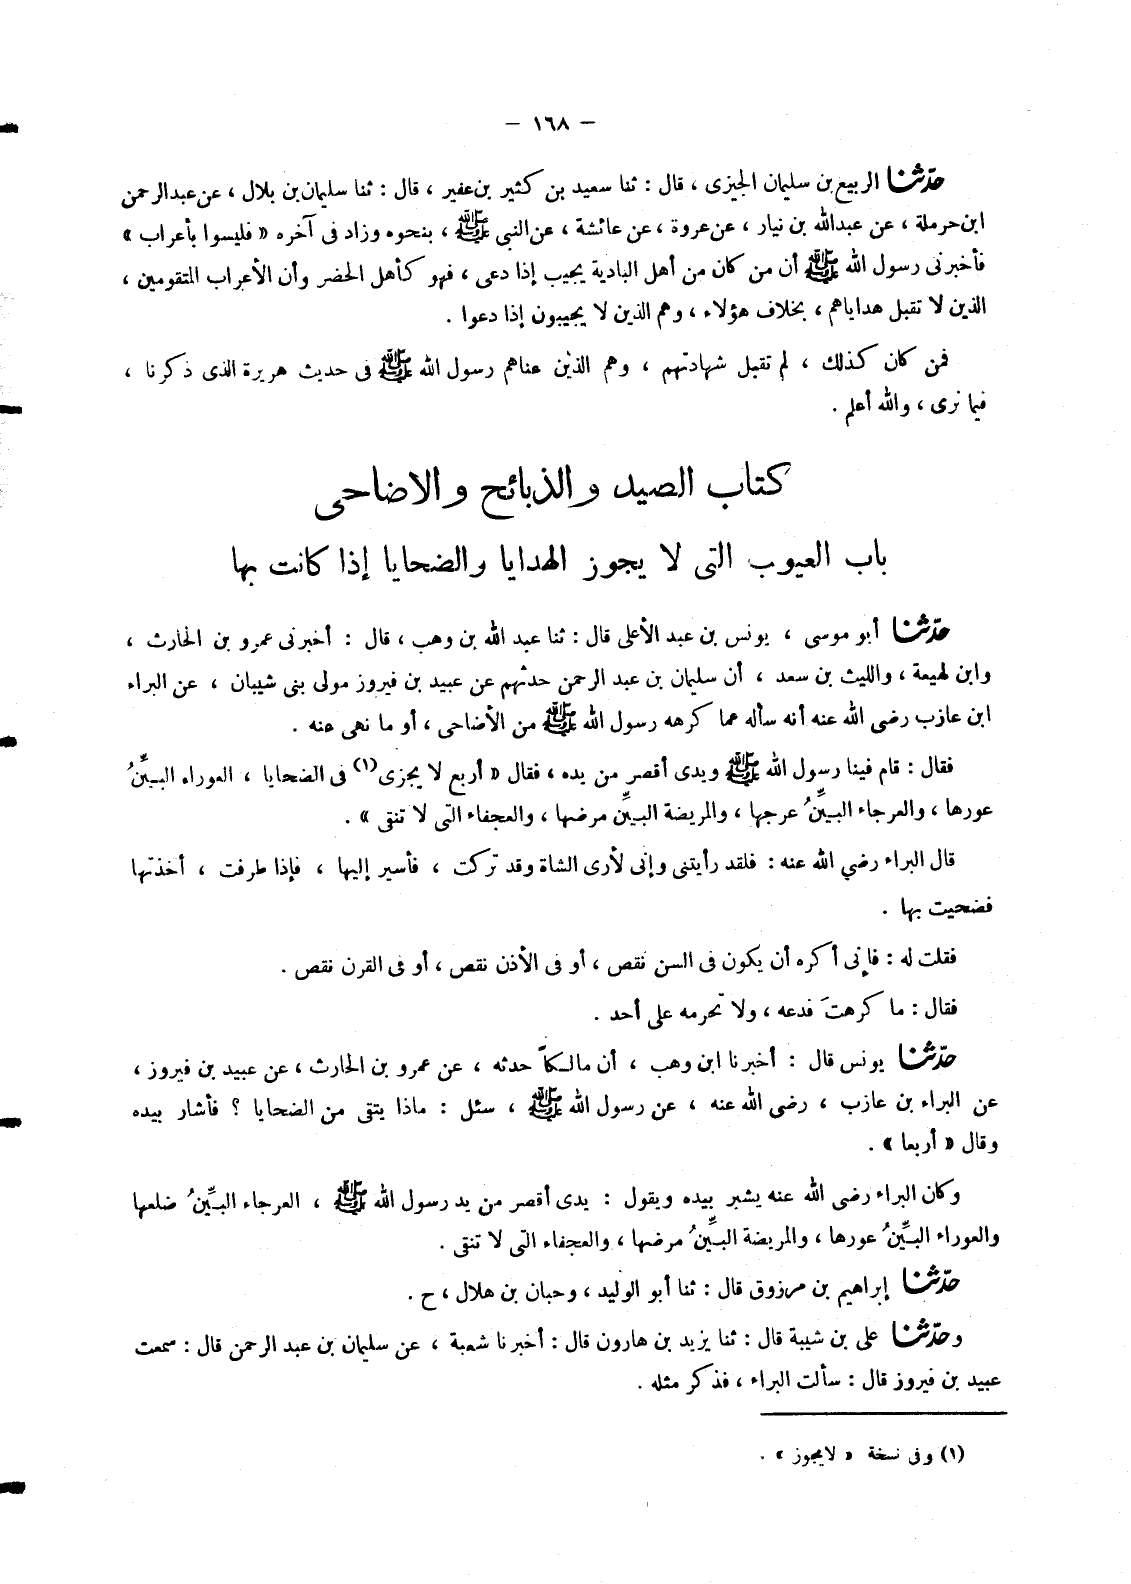 — ١٦٨ —
حدّثنا الربيع بن سليمان الجيزى ، قال : ثنا سعيد بن كثير بن عفير ، قال : ثنا سليمان بن بلال ، عن عبدالرحمن
ابن حرملة ، عن عبدالله بن نيار ، عن عروة ، عن عائشة ، عن النبى ﷺ ، بنحوه وزاد فى آخره « فليسوا بأعراب »
فأخبرنى رسول الله ﷺ أن من كان من أهل البادية يجيب إذا دعى ، فهو كأهل الحضر وأن الأعراب المتقومين ،
الذين لا تقبل هداياهم ، بخلاف هؤلاء ، وهم الذين لا يجيبون إذا دعوا .
فمن كان كذلك ، لم تقبل شهادتهم ، وهم الذين عناهم رسول الله ﷺ فى حديث هريرة الذى ذكرنا ،
فيما نرى ، والله أعلم .
كتاب الصيد والذبائح والاضاحى
باب العيوب التى لا يجوز الهدايا والضحايا إذا كانت بها
حدّثنا أبو موسى ، يونس بن عبد الأعلى قال : ثنا عبد الله بن وهب ، قال : أخبرنى عمرو بن الحارث ،
وابن لهيعة ، والليث بن سعد ، أن سليمان بن عبد الرحمن حدثهم عن عبيد بن فيروز مولى بنى شيبان ، عن البراء
ابن عازب رضى الله عنه أنه سأله عما كرهه رسول الله ﷺ من الأضاحى ، أو ما نهى عنه .
فقال : قام فينا رسول الله ﷺ ويدى أقصر من يده ، فقال « أربع لا يجزى(١) فى الضحايا ، العوراء البيِّنُ
عورها ، والعرجاء البيِّنُ عرجها ، والمريضة البيِّن مرضها ، والعجفاء التى لا تنقى » .
قال البراء رضي الله عنه : فلقد رأيتنى وإنى لأرى الشاة وقد تركت ، فأسير إليها ، فإذا طرفت ، أخذتها
فضحيت بها .
فقلت له : فإنى أكره أن يكون فى السن نقص ، أو فى الأذن نقص ، أو فى القرن نقص .
فقال : ما كرهتَ فدعه ، ولا تحرمه على أحد .
حدّثنا يونس قال : أخبرنا ابن وهب ، أن مالكاً حدثه ، عن عمرو بن الحارث ، عن عبيد بن فيروز ،
عن البراء بن عازب ، رضى الله عنه ، عن رسول الله ﷺ ، سئل : ماذا يتقى من الضحايا ؟ فأشار بيده
وقال « أربعا » .
وكان البراء رضى الله عنه يشبر بيده ويقول : يدى أقصر من يد رسول الله ﷺ ، العرجاء البيِّنُ ضلعها
والعوراء البيِّنُ عورها ، والمريضة البيِّنُ مرضها ، والعجفاء التى لا تنقى .
حدّثنا إبراهيم بن مرزوق قال : ثنا أبو الوليد ، وحبان بن هلال ، ح .
وحدّثنا على بن شيبة قال : ثنا يزيد بن هارون قال : أخبرنا شعبة ، عن سليمان بن عبد الرحمن قال : سمعت
عبيد بن فيروز قال : سألت البراء ، فذكر مثله .
(١) وفى نسخة « لايجوز » .